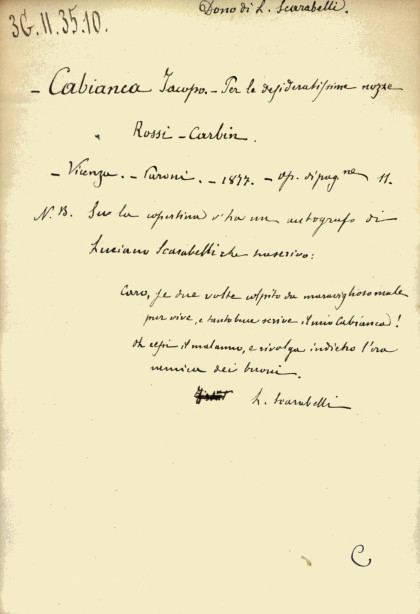 Dono di L. Scarabelli.
3G.II.35.10.
- Cabianca Jacopo. - Per le desideratissime nozze
Rossi - Carbin.
- Vicenza. - Paroni. - 1877. - Op. di pag.ne 11.
N.B. Su la copertina v'ha un autografo di
Luciano Scarabelli che trascrivo:
Caro, se due volte colpito da maraviglioso male
pur vive, e tanto bene scrive il mio Cabianca!
Oh cessi il malanno, e rivolga indietro l'ora
nemica dei buoni.
L. Scarabelli
C